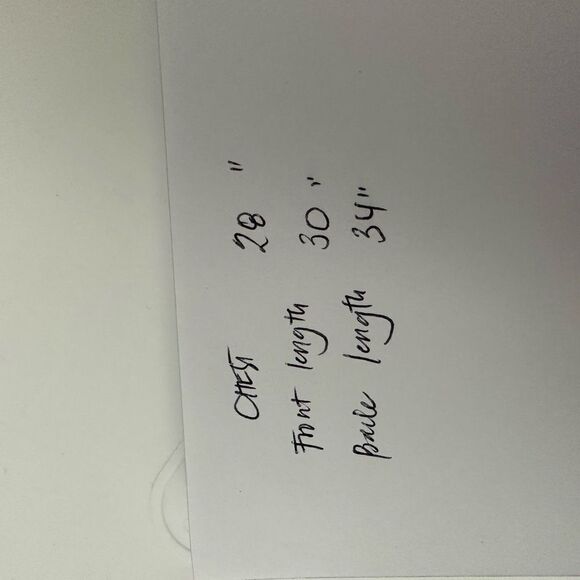 CHEST 28 "
Front length 30 "
Back length 34"